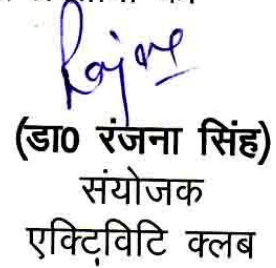 (डा0 रंजना सिंह)
संयोजक
एक्टिविटि क्लब